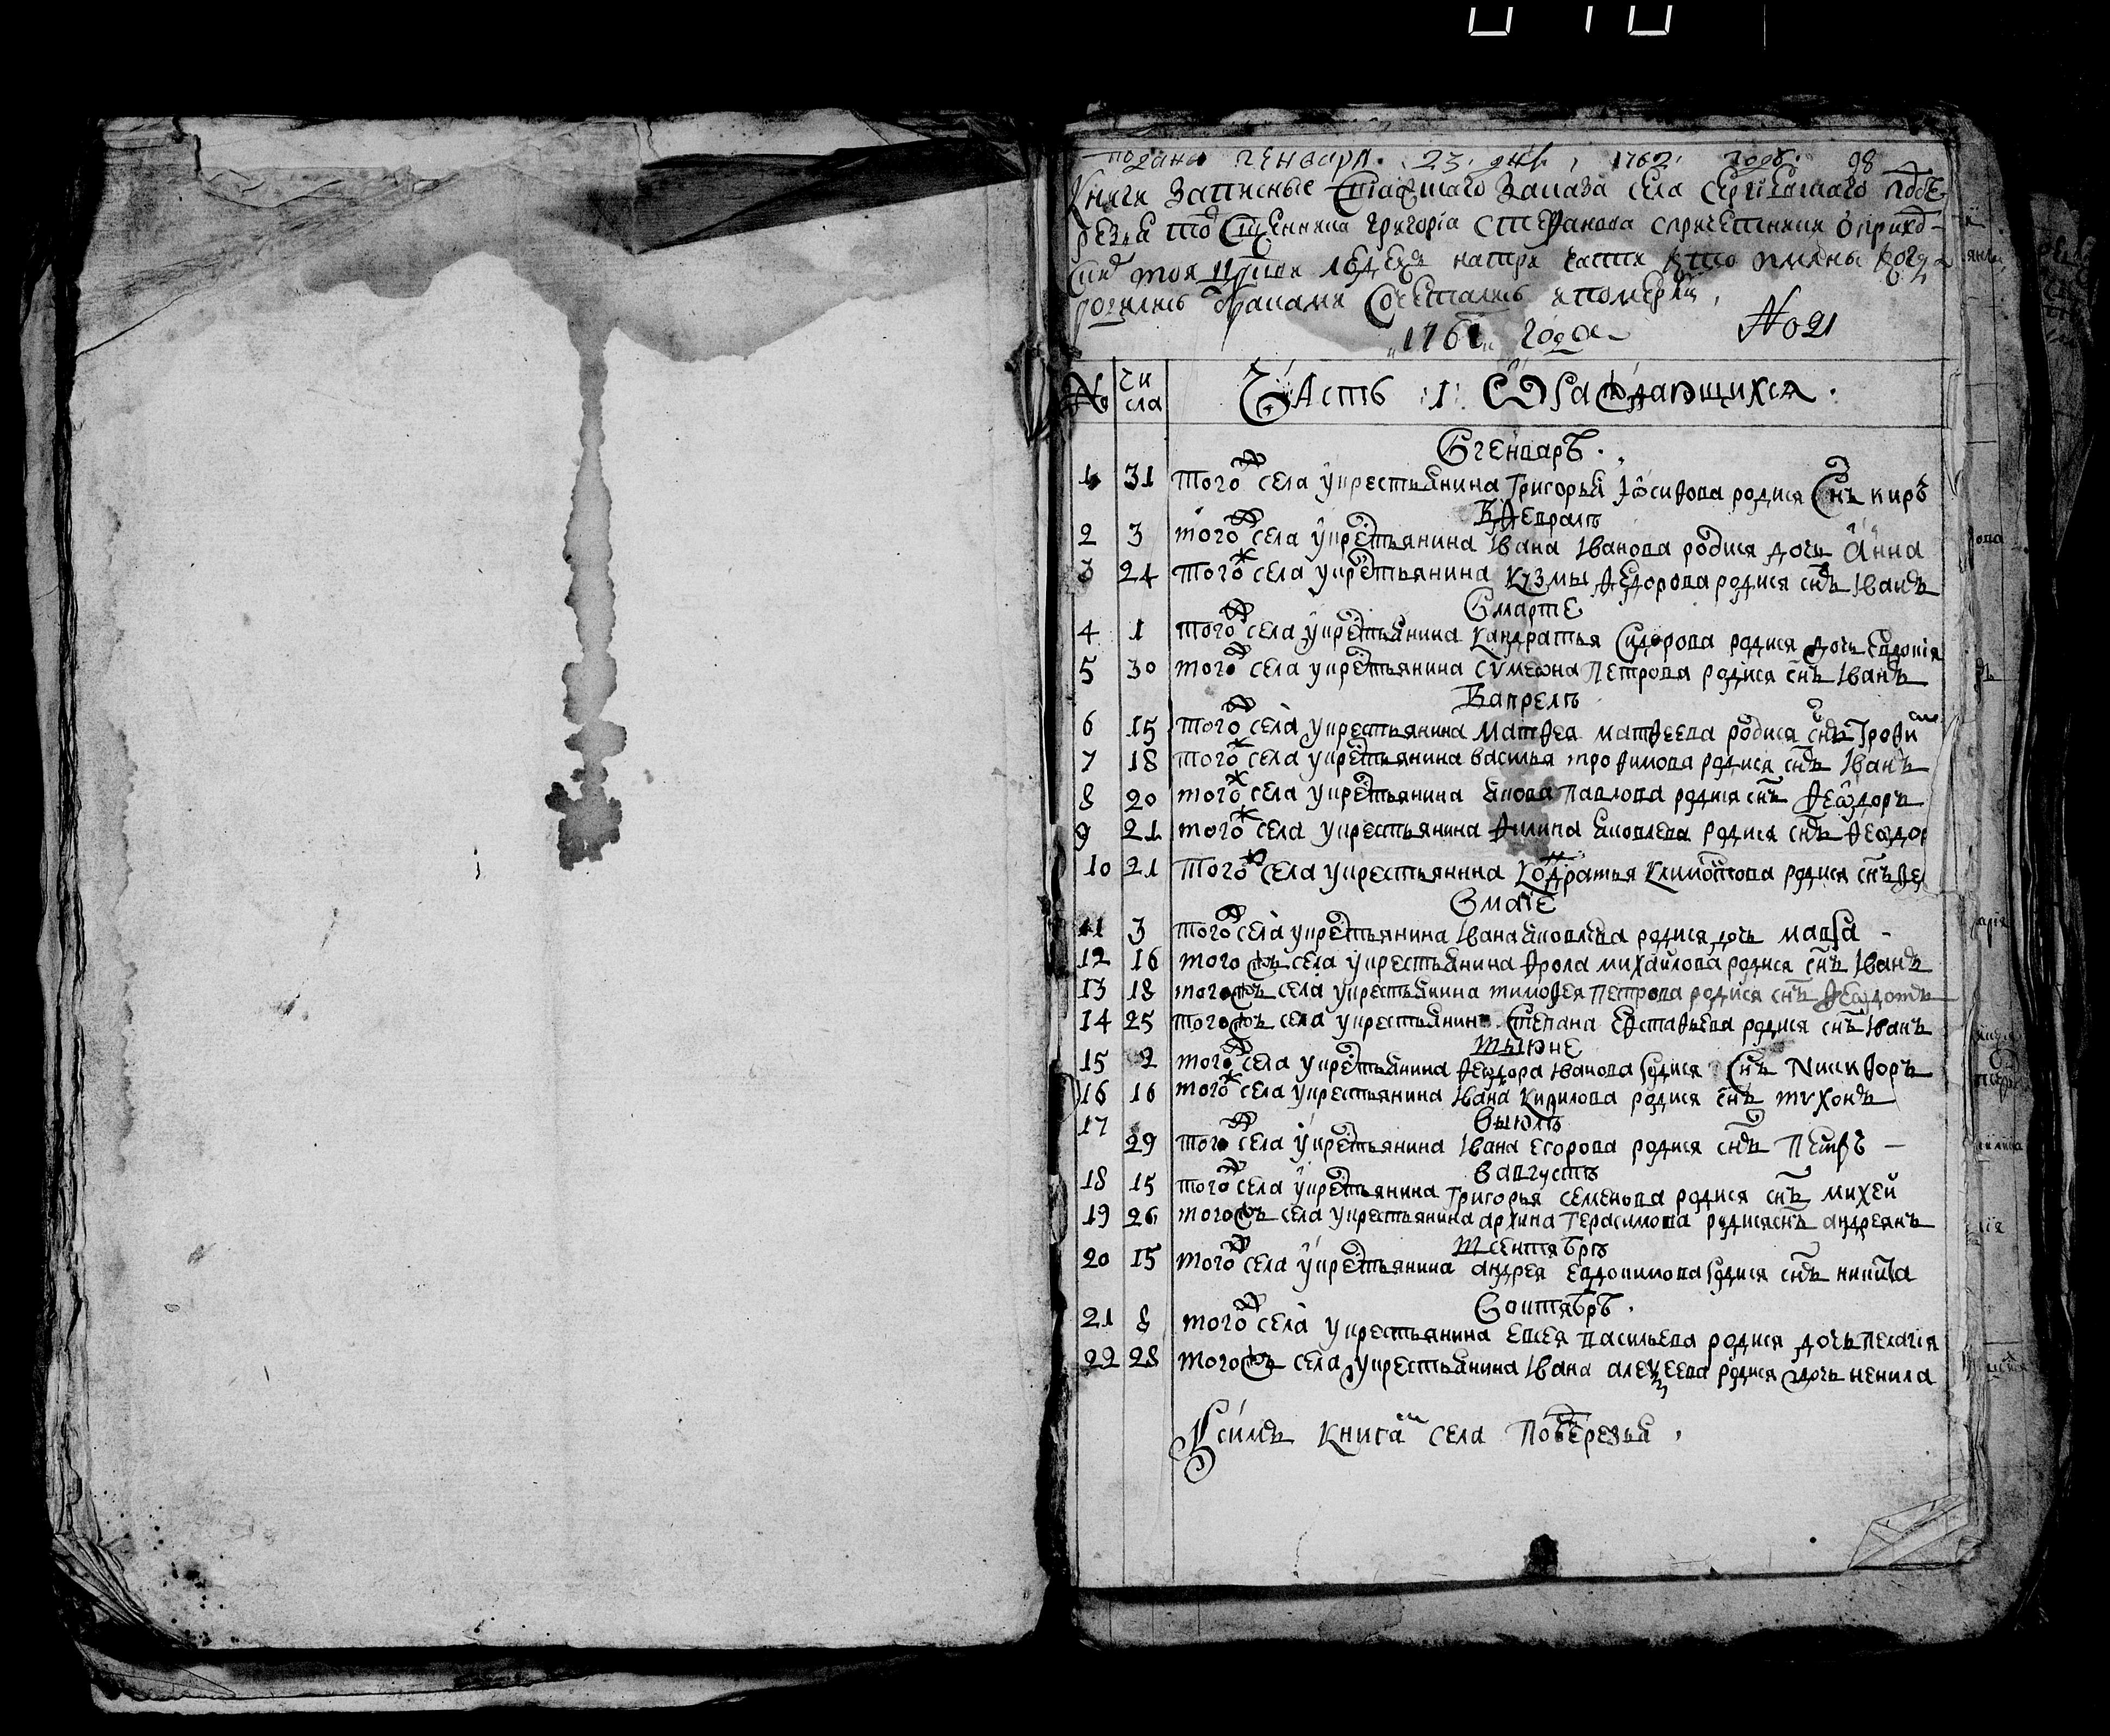 подано генваря 23 дня 1762 году 98
Книги Записные Спаского Заказа села Сергиевского Подбе
резья то Сщенника Григориа Стефанова спричетники о приход
тоя цркви людехъ на три части кто имяны когда
родились браками Сочетались и померли
1761 года No 21
No чи сла Часть 1 О раждающихся
Вгенваръ
1 31 того ж села у крестьянина Григорья Іосифова родися Снъ киръ
Вфевралъ
2 3 того ж села у крестьянина Ивана Иванова родися дочь Анна
3 24 того ж села у крестьянина Кузмы Федорова родися снъ Иванъ
Вмарте
4 1 того ж села у крестьянина Кандратья Сидорова родися дочь Евдокия
5 30 того ж села у крестьянина Сумеона Петрова родися снъ Иванъ
Вапрелъ
6 15 того ж села у крестьянина Матфея матфеева родися снъ Трофим
7 18 того ж села у крестьянина василья трофимова родися снъ Иванъ
8 20 того ж села у крестьянина Якова павлова родися снъ Феѡдоръ
9 21 того ж села у крестьянина Филипа Яковлева родися снъ Феѡдор
10 21 того ж села у крестьянина Кодратья Климонтова родися снъ
Вмаіе
11 3 того ж села у крестьянина Ивана Яковлева родися дочь мавра
12 16 того жъ села у крестьянина Фрола михайлова родися снъ Иванъ
13 18 того жъ села у крестьянина тимофея Петрова родися снъ Феѡдотъ
14 25 того жъ села у крестьянина Степана Евстафьева родися снъ Иванъ
выюне
15 2 того ж села у крестьянина Феѡдора Иванова родися Снъ Никифоръ
16 16 того ж села у крестьянина Ивана Кирилова родися снъ тѵхонъ
Выюлъ
17 29 того ж села у крестьянина Ивана Егорова родися снъ Петръ
Вавгустъ
18 15 того ж села у крестьянина Григорья семенова родися снъ михей
19 26 того жъ села у крестьянина архипа Герасимова родися снъ андреянъ
всентябръ
20 15 того ж села у крестьянина андрея евдокимова родися снъ никита
Воктябръ
21 8 того ж села у крестьянина евсея васильева родися дочь пелагия
22 28 того жъ села у крестьянина Ивана алексеева родися дочь ненила
Ксимъ книгам села Подберезья